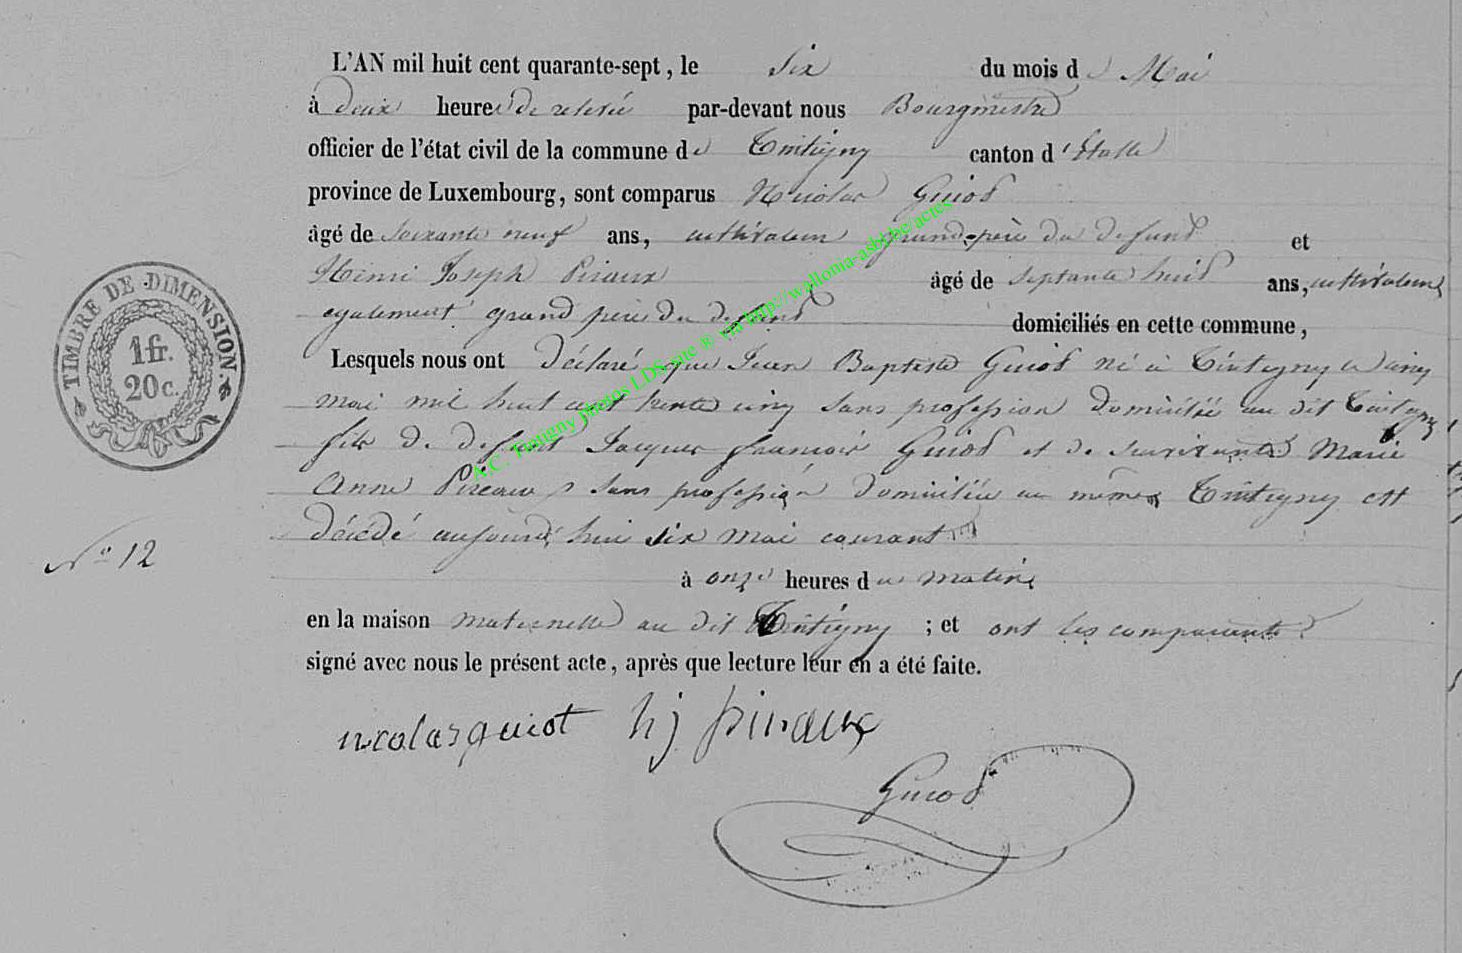 L'AN mil huit cent quarante-sept, le Six du mois de Mai
à deux heures de relevée par-devant nous Bourgmestre
officier de l'état civil de la commune de Tintigny canton d'Etalle
province de Luxembourg, sont comparus Nicolas Guiot
âgé de soixante neuf ans, cultivateur grand-père du defunt et
Henri Joseph Piraux âgé de septante huit ans, cultivateur
egalement grand père du defunt domiciliés en cette commune,
Lesquels nous ont déclaré que Jean Baptiste Guiot né à Tintigny le cinq
mai mil huit cent trente cinq sans profession domicilié au dit Tintigny
fils de defunt Jacques françois Guiot et de survivante Marie
Anne Piraux sans profession domiciliée au même Tintigny est
décédé aujourd'hui six mai courant
à onze heures du matin
en la maison maternelle au dit Tintigny ; et ont les comparants
signé avec nous le présent acte, après que lecture leur en a été faite.
nicolas guiot hj piraux
Guiot
N° 12
TIMBRE DE DIMENSION.
1 fr.
20 c.
A.C. Tintigny photos LDS site ® via http://wallonia-asbl.be/actes